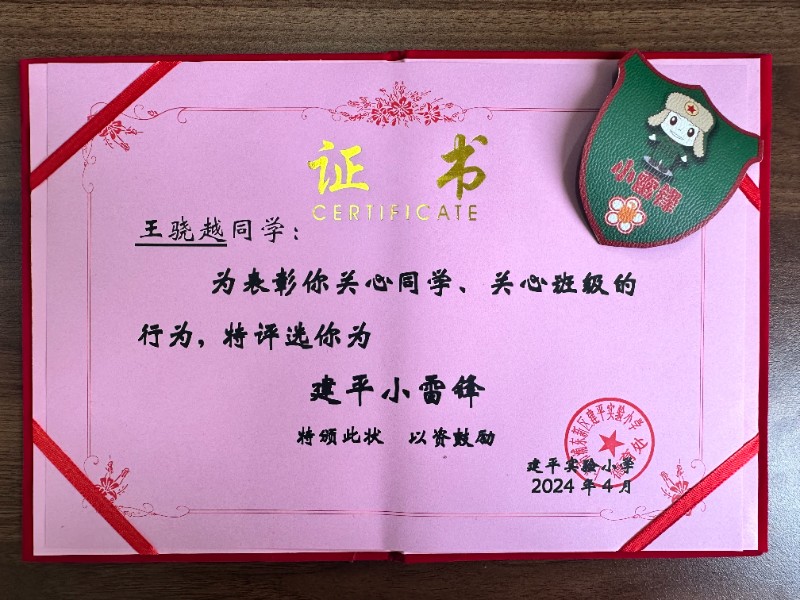 证 书
CERTIFICATE
王骁越同学：
为表彰你关心同学、关心班级的
行为，特评选你为
建平小雷锋
特颁此状 以资鼓励
建平实验小学
2024 年 4 月
小雷锋
浦东新区建平实验小学